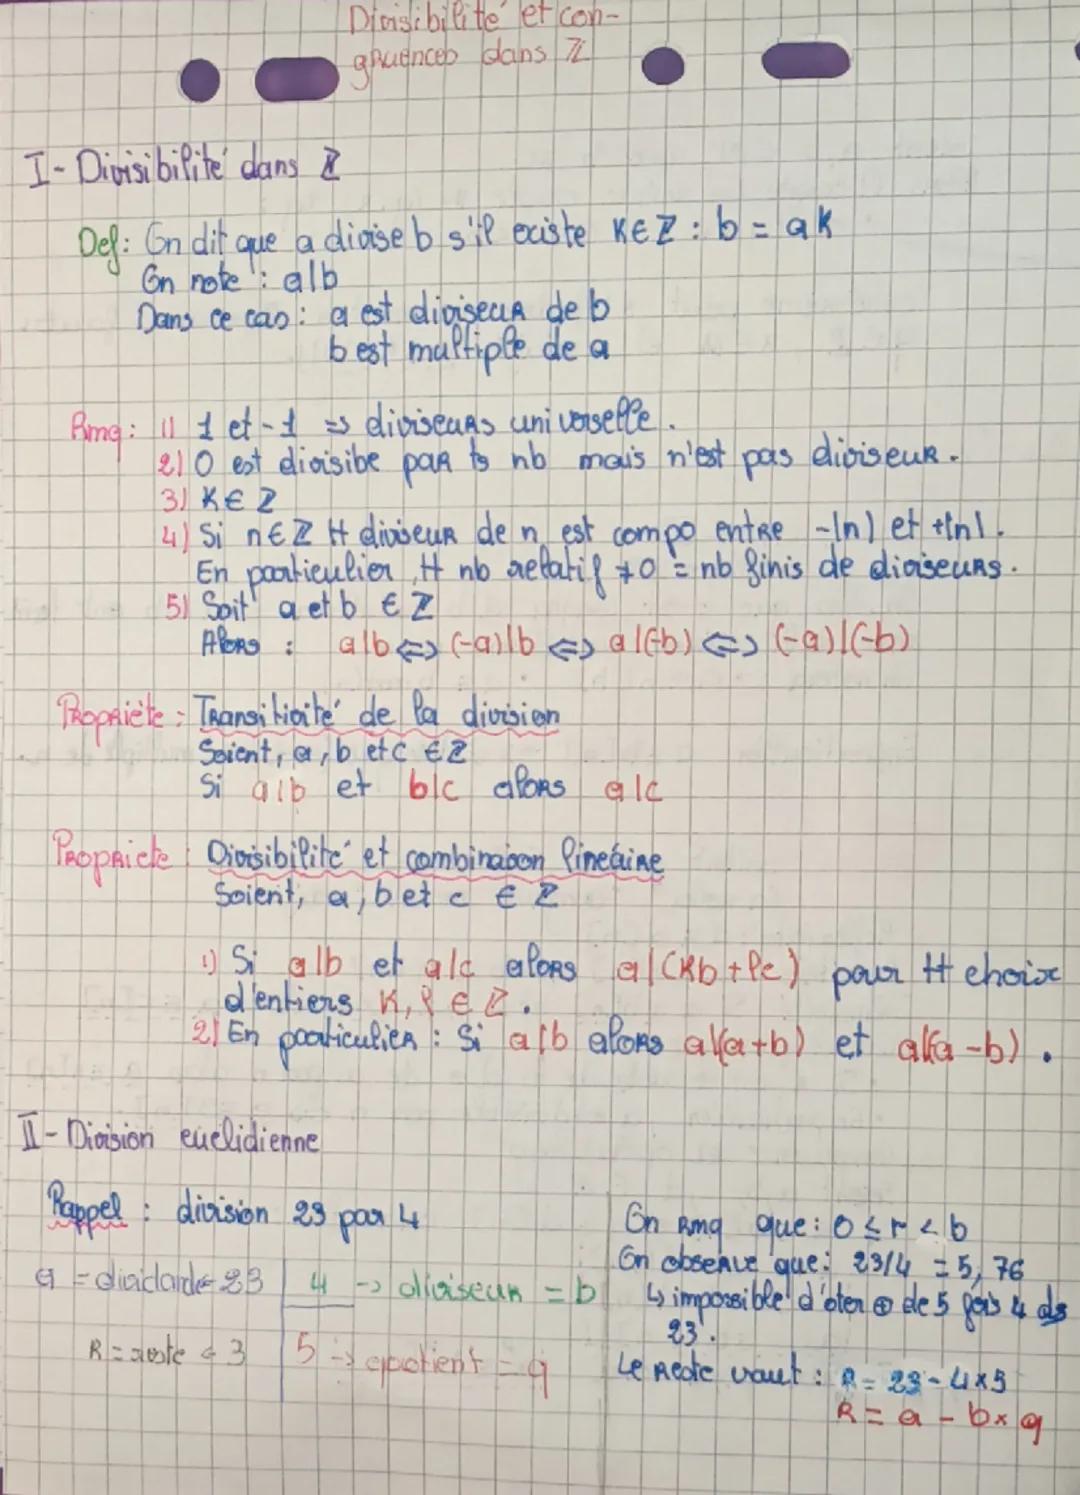 Divisibilité et con-
gruences dans ℤ
I - Divisibilité dans ℤ
Def: On dit que a divise b s'il existe K∈ℤ : b = aK
On note : a|b
Dans ce cas : a est diviseur de b
b est multiple de a
Rmq : 1) 1 et -1 => diviseurs universelle.
2) 0 est divisibe par ts nb mais n'est pas diviseur.
3) K∈ℤ
4) Si n∈ℤ tt diviseur de n est compo entre -|n| et +|n|.
En particulier, tt nb relatif ≠0 = nb finis de diviseurs.
5) Soit a et b ∈ℤ
Alors : a|b <=> (-a)|b <=> a|(-b) <=> (-a)|(-b)
Propriète : Transitivité de la division
Soient, a, b et c ∈ℤ
Si a|b et b|c alors a|c
Propriete : Divisibilité et combinaison linéaire
Soient, a, b et c ∈ ℤ
1) Si a|b et a|c alors a|(Kb+lc) pour tt choix
d'entiers K, l ∈ ℤ.
2) En particulier : Si a|b alors a|(a+b) et a|(a-b).
II - Division euclidienne
Rappel : division 23 par 4
a = dividande 23 | 4 -> diviseur = b
R = reste 3 | 5 -> quotient = q
On rmq que : 0 ≤ r < b
On observe que : 23/4 = 5,76
↳ impossible d'oter ⊕ de 5 fois 4 ds
23.
Le reste vaut : R = 23 - 4×5
R = a - b×q